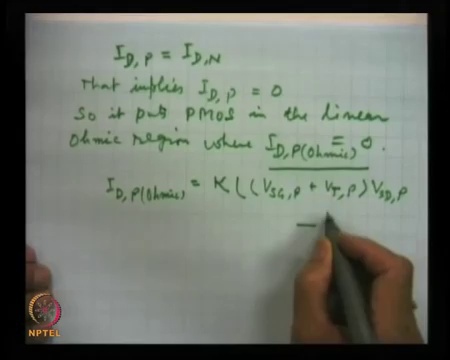 I_D,P = I_D,N
That implies I_D,P = 0
So it puts PMOS in the linear
Ohmic region where I_D,P(Ohmic) = 0.
I_D,P(Ohmic) = K ( (V_SG,P + V_T,P) V_SD,P
—
NPTEL